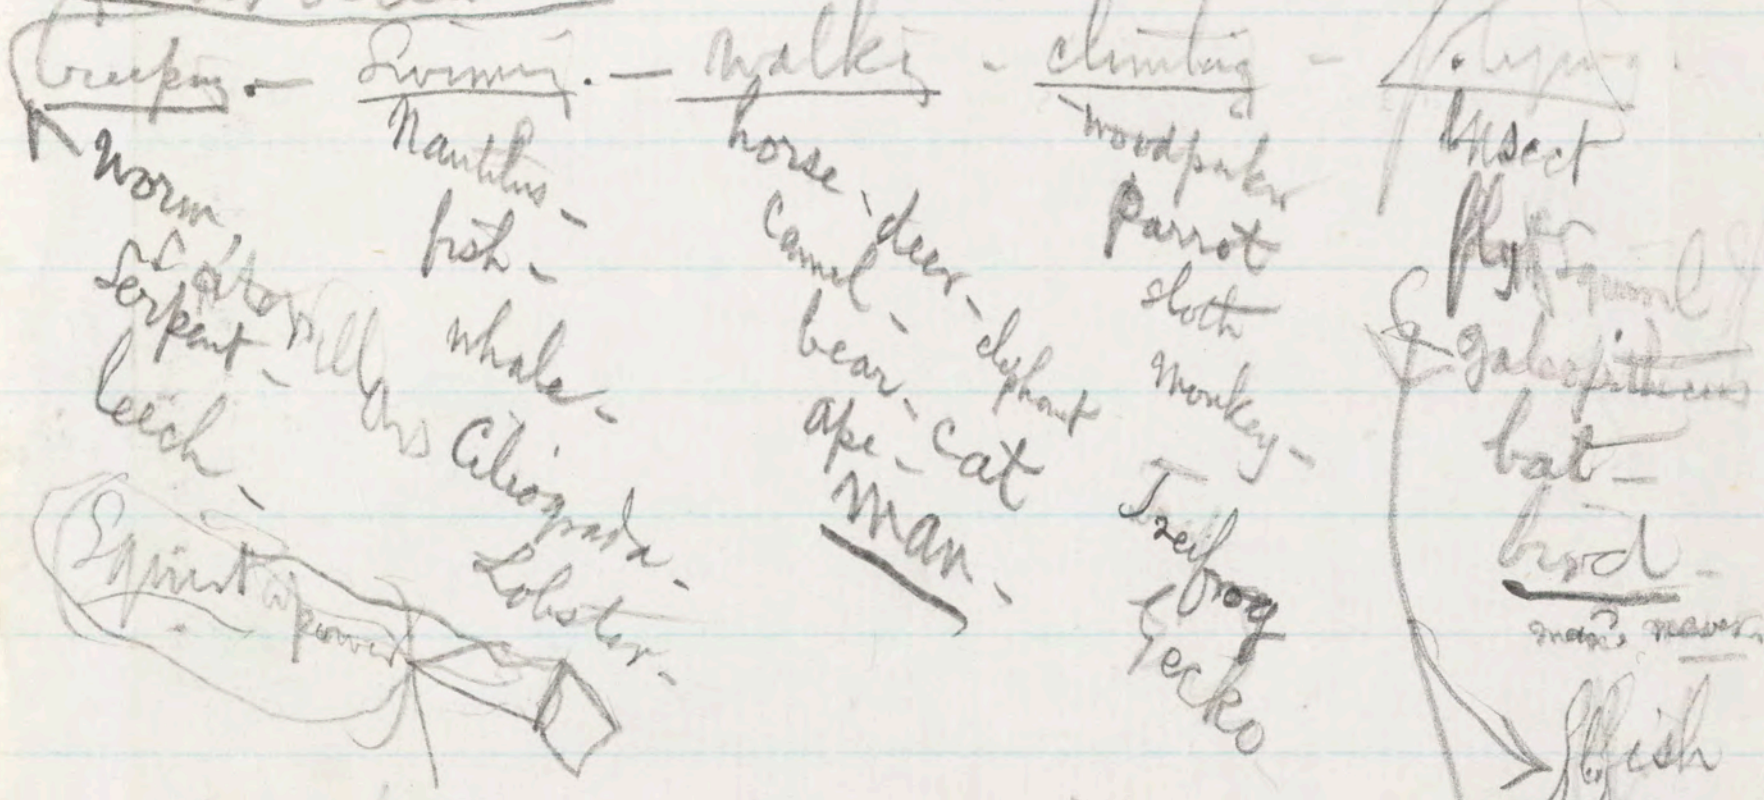 creeping. — Swiming. — walkg - climbing - flying.
worm,
caterpillars
Serpent -
leech -
Squirrel
power
Nautilus -
fish -
whale -
Ciliograda -
Lobster -
horse, deer, - elephant
Camel -
bear, - Cat
ape -
man -
woodpecker
Parrot
sloth
monkey -
Treefrog
Gecko
Insect
flyg Squirrel
galeopithecus
bat -
bird -
man? never
flfish